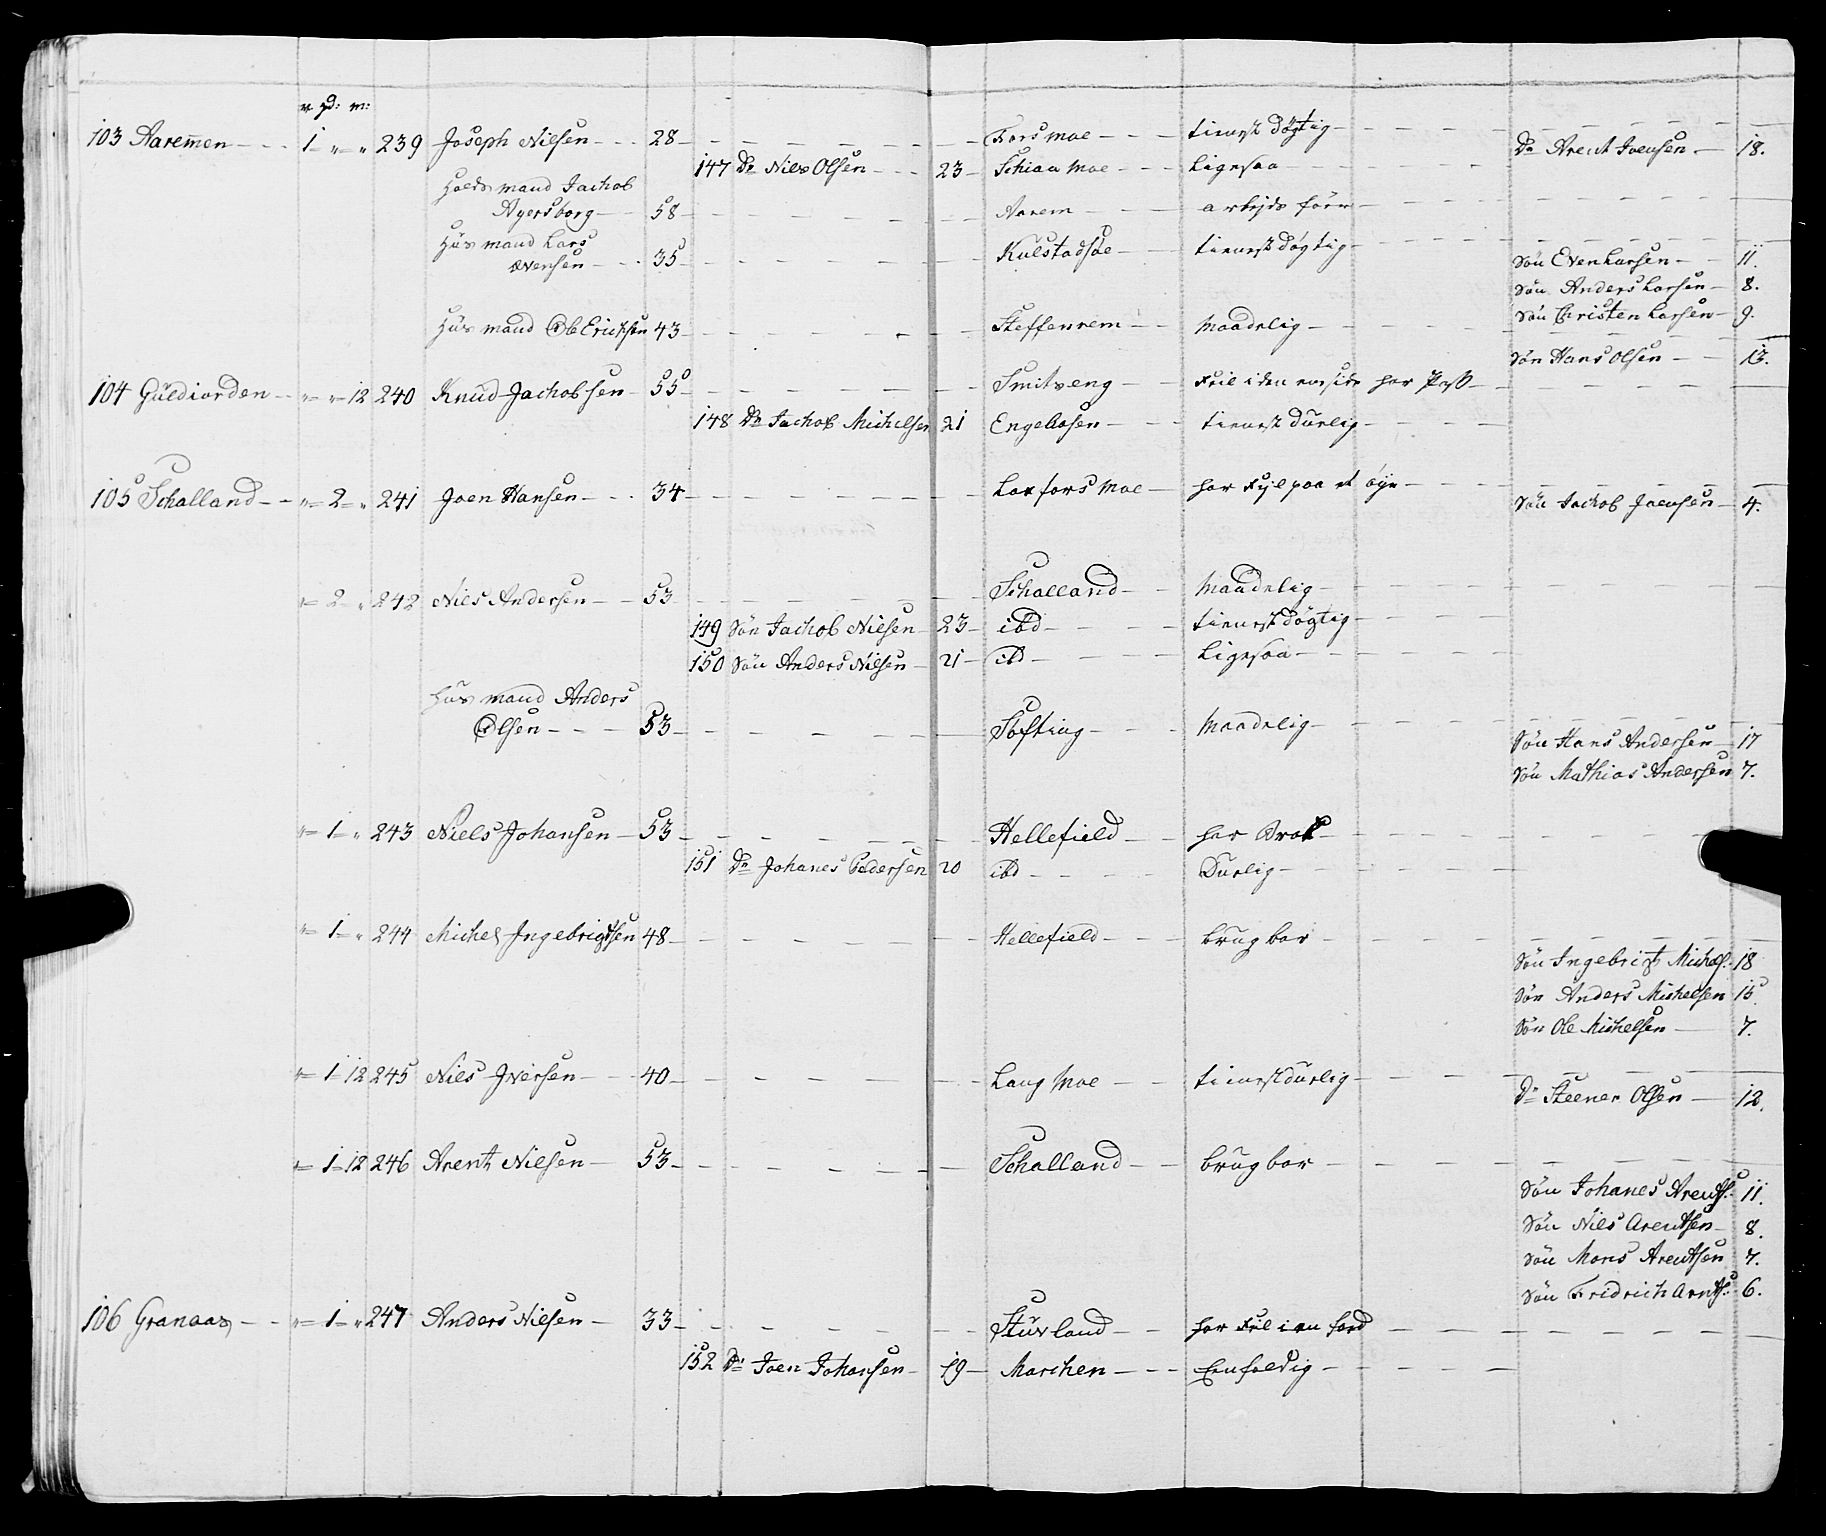 v. pd: m:
103 Aaremen 1 " " 239 Joseph Nilsen 28 Forsmoe tienst døgtig
Dr Arent Ivensen 18.
147 Dr Niels Olsen 23 Schiaa Moe Ligesaa
mand Jachob
Ayersborg 58 Aarem arbejds føer
Huus mand Lars
Evensen 35 Kulstadsøe tienst døgtig
Søn Even Larsen 11.
Søn Anders Larsen 8.
Søn Christen Larsen 9.
Huus mand Ole Erichsen 43 Steffenrem Maadelig
Søn Hans Olsen 13.
104 Guldiorden " " 12 240 Knud Jachobsen 55 Smitseng Feil i den ene side har Pass
148 Dr Jachob Michelsen 21 Engelaasen tienst durlig
105 Schalland " 2 " 241 Joen Hansen 34 Laxfors Moe har Fejl paa et øye
Søn Jachob Joensen 4.
" 2 " 242 Nils Andersen 53 Schalland Maadelig
149 Søn Jachob Nilsen 23 ibd tienst døgtig
150 Søn Anders Nilsen 21 ibd Ligesaa
Huus mand Anders
Olsen 53 Softing Maadelig
Søn Hans Andersen 17
Søn Mathias Andersen 7.
" 1 " 243 Niels Johansen 53 Hellefield har Brok
151 Dr Johanes Pedersen 20 ibd Durlig
" 1 " 244 Michel Ingebrigtsen 48 Hellefield brugbar
Søn Ingebrigt Michels: 18
Søn Anders Michelsen 15.
Søn Ole Michelsen 7.
" 1 12 245 Niels Iversen 40 Lang Moe tienst durlig
Dr Steener Olsen 12.
" 1 12 246 Arent Nilsen 53 Schalland brugbar
Søn Johanes Arents: 11.
Søn Nils Arentsen 8.
Søn Mons Arentsen 7.
Søn Fridrich Arnts: 6.
106 Granaas " 1 " 247 Anders Nilsen 33 Stuvland har Feil i en
152 Dr Joen Johansen 19 Marchen Eenfoldig